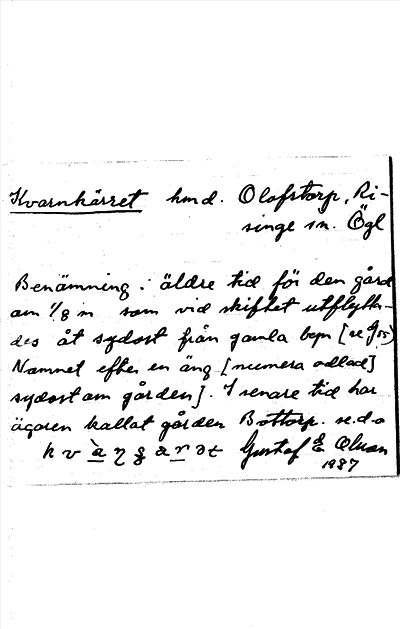 Kvarnkärret hmd. Olofstorp, Ri-
singe sn. Ögl
Benämning i äldre tid för den gård
om 1/8 m som vid skiftet utflytta-
des åt sydost från gamla byn [se
Namnet efter en äng [numera odlad]
sydost om gården]. I senare tid har
ägaren kallat gården Bottorp. se d.o
Gustaf E Olsson
1937